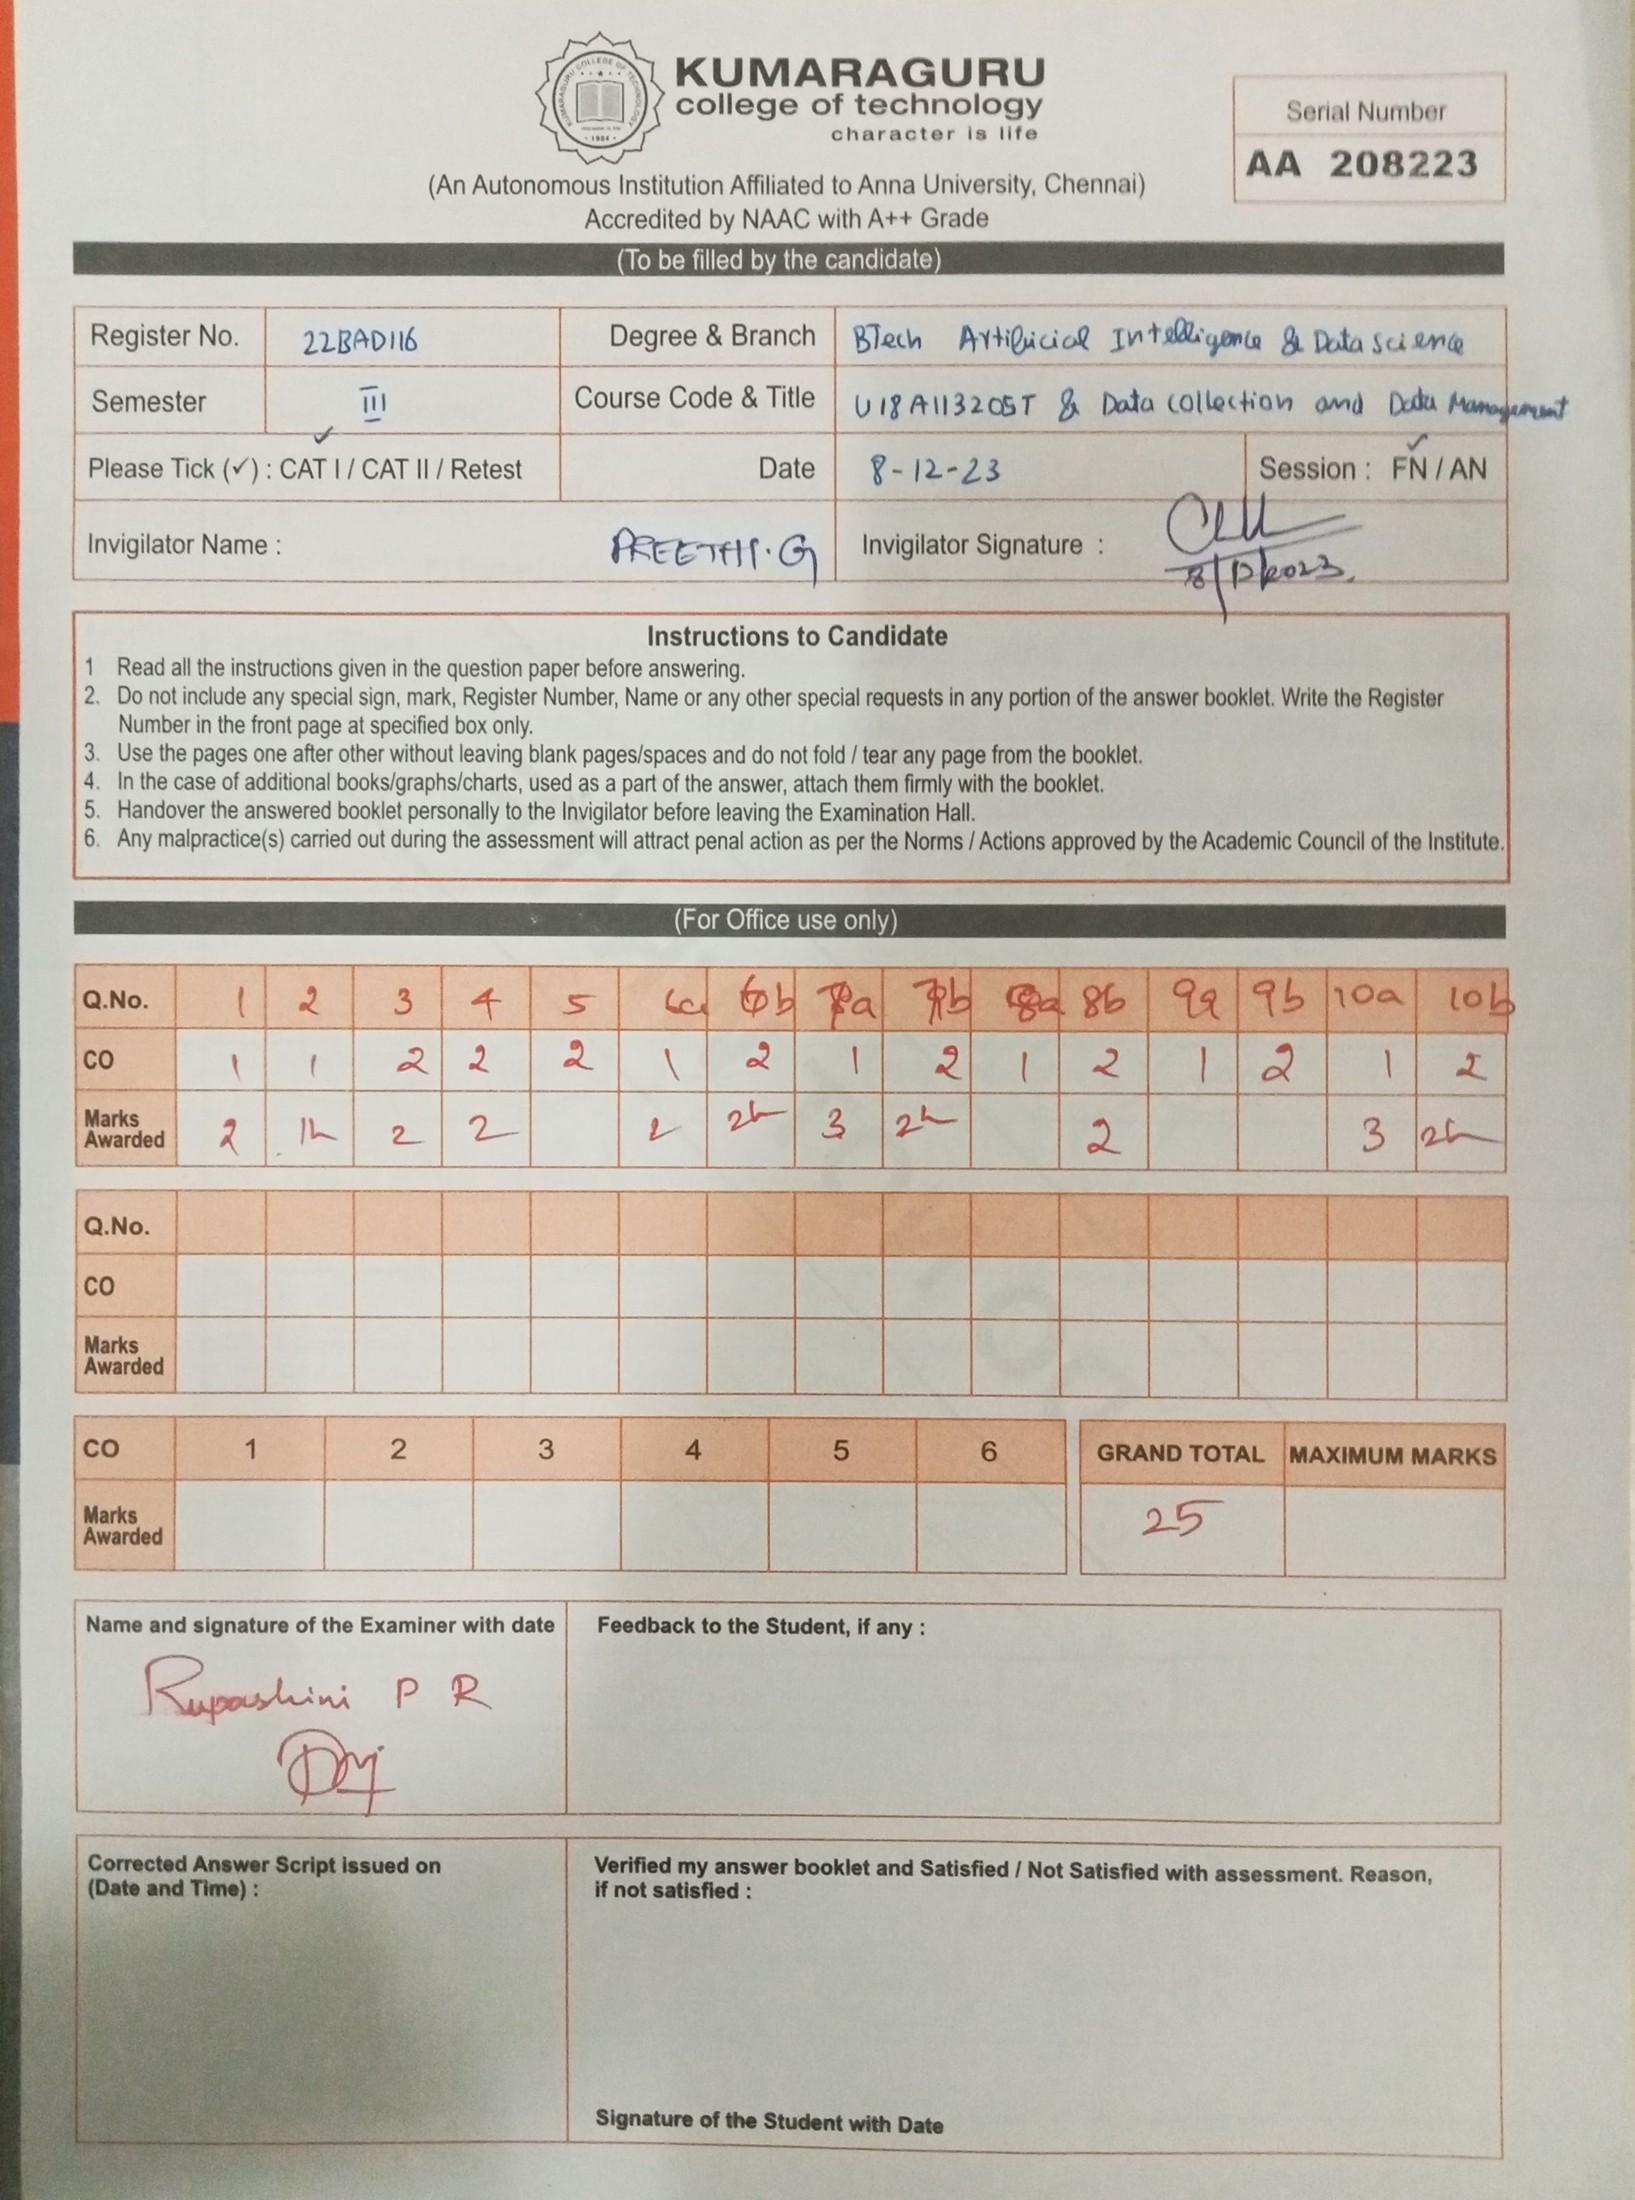 KUMARAGURU
college of technology
character is life
KUMARAGURU COLLEGE OF TECHNOLOGY
1984
(An Autonomous Institution Affiliated to Anna University, Chennai)
Accredited by NAAC with A++ Grade
Serial Number
AA 208223
(To be filled by the candidate)
Register No. 22BAD116 Degree & Branch BTech Artificial Intelligence & Data science
Semester III Course Code & Title U18AII3205T & Data collection and Data Management
Please Tick (✓) : CAT I / CAT II / Retest Date 8-12-23 Session : FN / AN
Invigilator Name : PREETHI.G Invigilator Signature :
8/12/2023.
Instructions to Candidate
1 Read all the instructions given in the question paper before answering.
2. Do not include any special sign, mark, Register Number, Name or any other special requests in any portion of the answer booklet. Write the Register
Number in the front page at specified box only.
3. Use the pages one after other without leaving blank pages/spaces and do not fold / tear any page from the booklet.
4. In the case of additional books/graphs/charts, used as a part of the answer, attach them firmly with the booklet.
5. Handover the answered booklet personally to the Invigilator before leaving the Examination Hall.
6. Any malpractice(s) carried out during the assessment will attract penal action as per the Norms / Actions approved by the Academic Council of the Institute.
(For Office use only)
Q.No. 1 2 3 4 5 6a 6b 7a 7b 8a 8b 9a 9b 10a 10b
CO 1 1 2 2 2 1 2 1 2 1 2 1 2 1 2
Marks
Awarded 2 1½ 2 2 2 2½ 3 2½ 2 3 2½
Q.No.
CO
Marks
Awarded
CO 1 2 3 4 5 6 GRAND TOTAL MAXIMUM MARKS
Marks
Awarded 25
Name and signature of the Examiner with date
Rupashini P R
Feedback to the Student, if any :
Corrected Answer Script issued on
(Date and Time) :
Verified my answer booklet and Satisfied / Not Satisfied with assessment. Reason,
if not satisfied :
Signature of the Student with Date